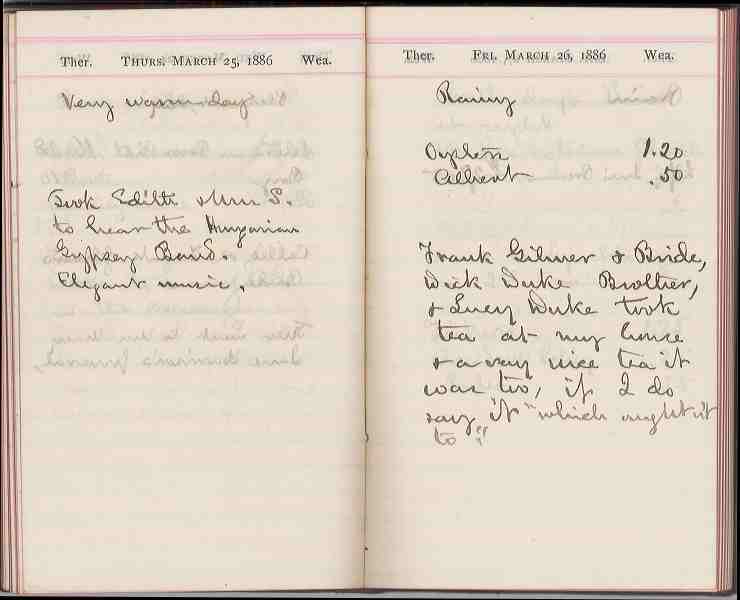 Ther. THURS. MARCH 25, 1886 Wea.
Very warm day
Took Edith & Mrs S.
to hear the Hungarian
Gypsey Band.
Elegant music.
Ther. FRI. MARCH 26, 1886 Wea.
Rainy
1.20
Albert .50
Frank Gilmer & Bride,
Dick Duke Brother,
& Lucy Duke took
tea at my house
& a very nice tea it
was too, if I do
say it "which ought it
to"